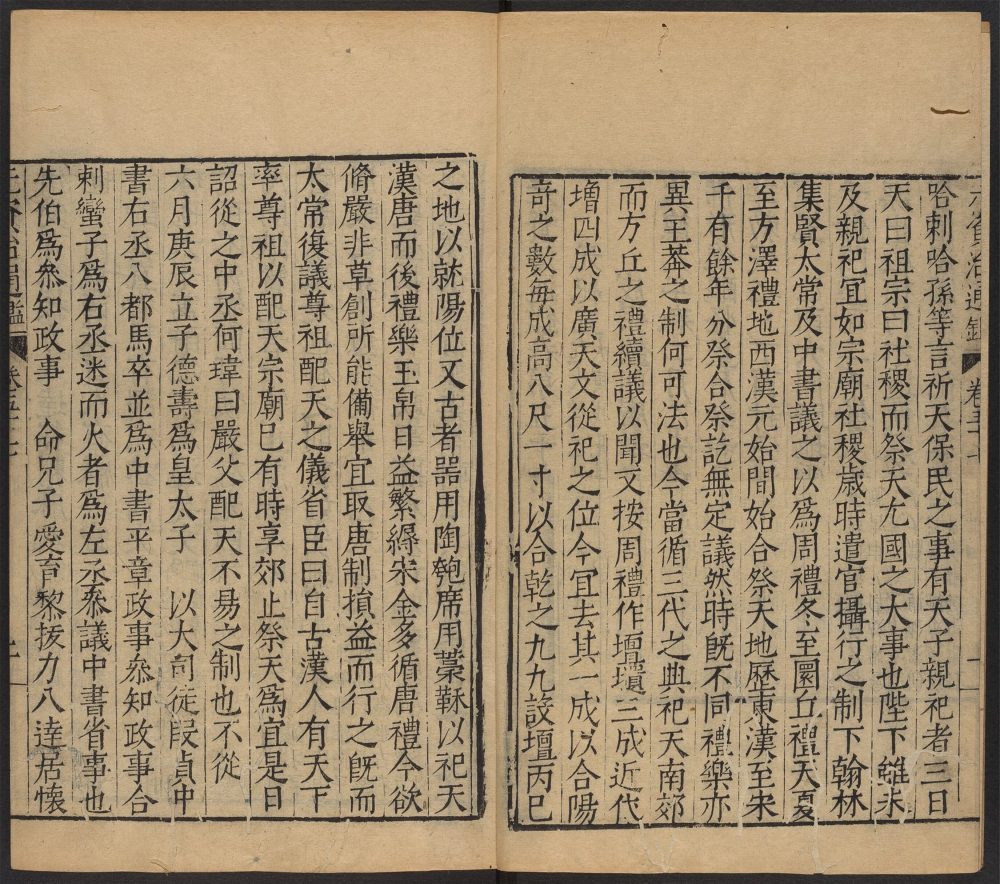 哈剌哈孫等言祈天保民之事有天子親祀者三曰
天曰祖宗曰社稷而祭天尤國之大事也陛下雖未
及親祀宜如宗廟社稷歲時遣官攝行之制下翰林
集賢太常及中書議之以爲周禮冬至圜丘禮天夏
至方澤禮地西漢元始間始合祭天地歷東漢至宋
千有餘年分祭合祭訖無定議然時旣不同禮樂亦
異王莽之制何可法也今當循三代之典祀天南郊
而方丘之禮續議以聞又按周禮作壇壝三成近代
增四成以廣天文從祀之位今宜去其一成以合陽
奇之數每成高八尺一寸以合乾之九九設壇丙巳
之地以就陽位又古者器用陶匏席用藁秸以祀天
漢唐而後禮樂玉帛日益繁縟宋金多循唐禮今欲
脩嚴非草創所能備舉宜取唐制損益而行之旣而
太常復議尊祖配天之儀省臣曰自古漢人有天下
率尊祖以配天宗廟已有時享郊止祭天爲宜是日
詔從之中丞何瑋曰嚴父配天不易之制也不從
六月庚辰立子德壽爲皇太子 以大司徒段貞中
書右丞八都馬辛並爲中書平章政事叅知政事合
剌蠻子爲右丞迷而火者爲左丞叅議中書省事也
先伯爲叅知政事 命兄子愛育黎拔力八達居懷
卷五十